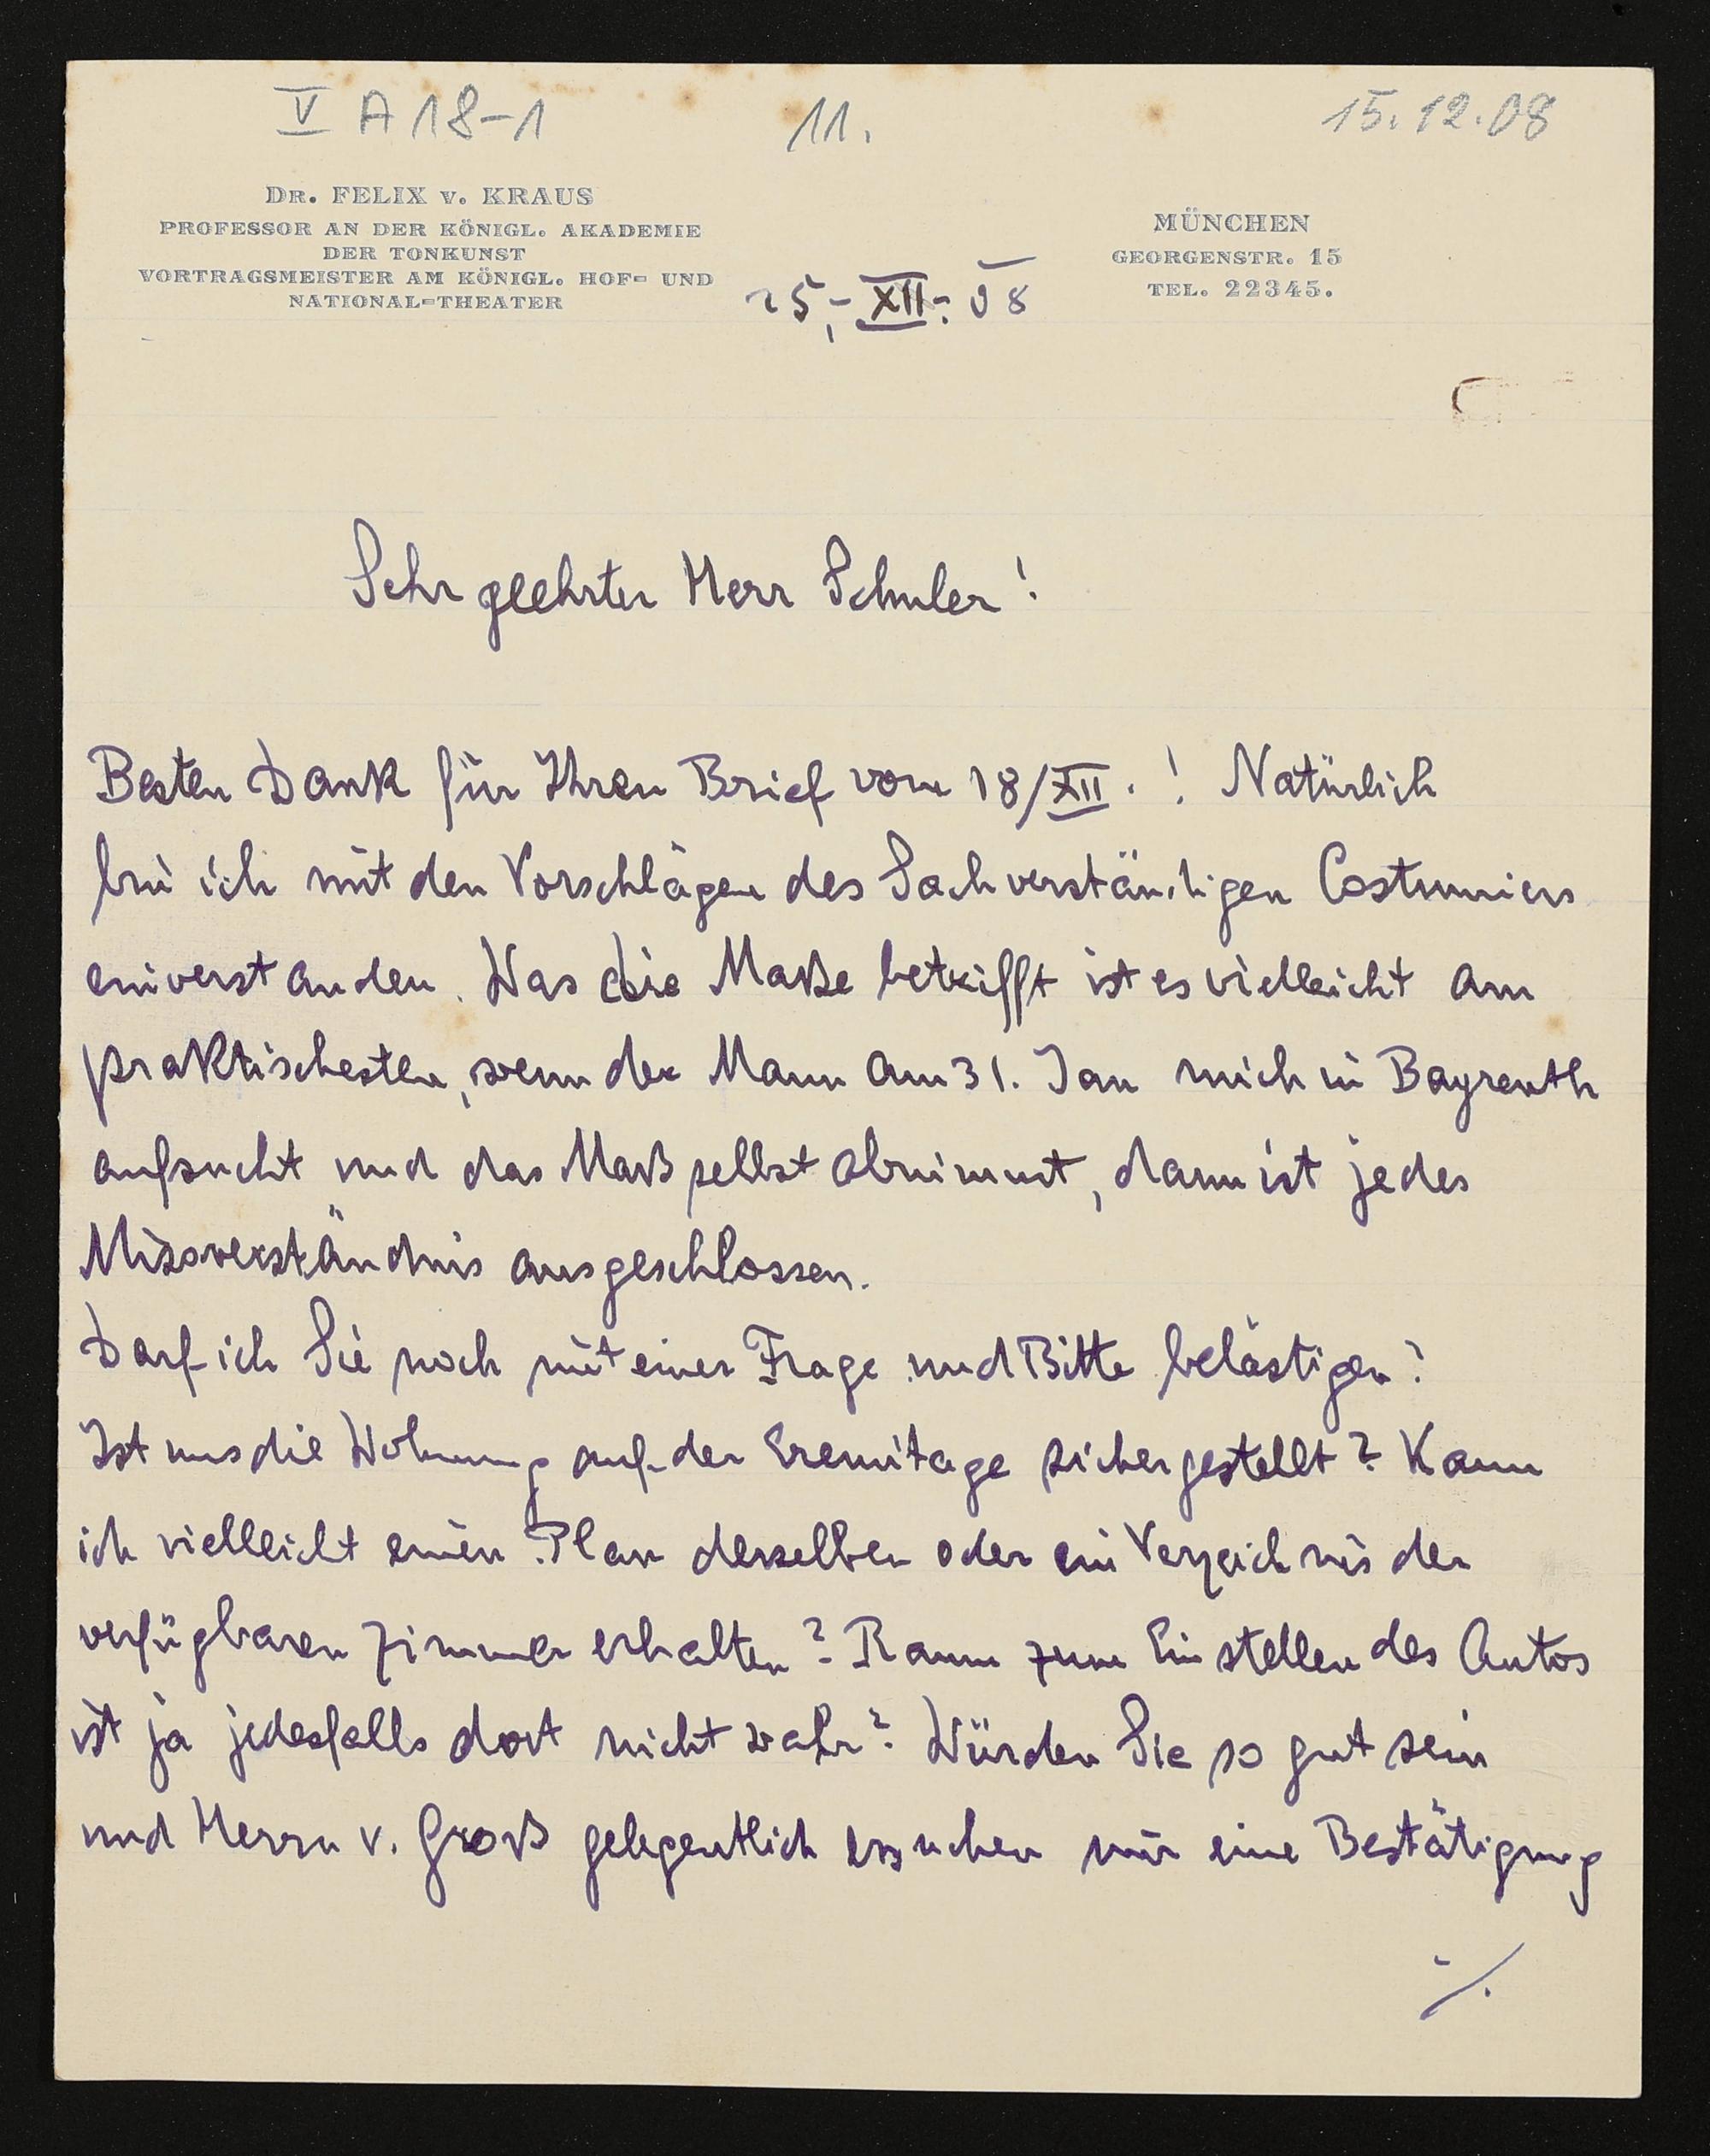 V A 18-1 11. 15.12.08
DR. FELIX v. KRAUS
PROFESSOR AN DER KÖNIGL. AKADEMIE
DER TONKUNST
VORTRAGSMEISTER AM KÖNIGL. HOF- UND
NATIONAL-THEATER
MÜNCHEN
GEORGENSTR. 15
TEL. 22345.
25.-XII-.08
Sehr geehrter Herr Schuler!
Besten Dank für Ihren Brief vom 18/XII.! Natürlich
bin ich mit den Vorschlägen des Sachverständigen Costumiers
einverstanden. Was die Maße betrifft ist es vielleicht am
praktischesten, wenn der Mann am 31. Jan mich in Bayreuth
aufsucht und das Maß selbst abnimmt, dann ist jedes
Missverständnis ausgeschlossen.
Darf ich Sie noch mit einer Frage und Bitte belästigen?
Ist uns die Wohnung auf der Eremitage sichergestellt? Kann
ich vielleicht einen Plan derselben oder ein Verzeichnis der
verfügbaren Zimmer erhalten? Raum zum Einstellen des Autos
ist ja jedesfalls dort nicht wahr? Würden Sie so gut sein
und Herrn v. Groß gelegentlich ersuchen mir eine Bestätigung
./.